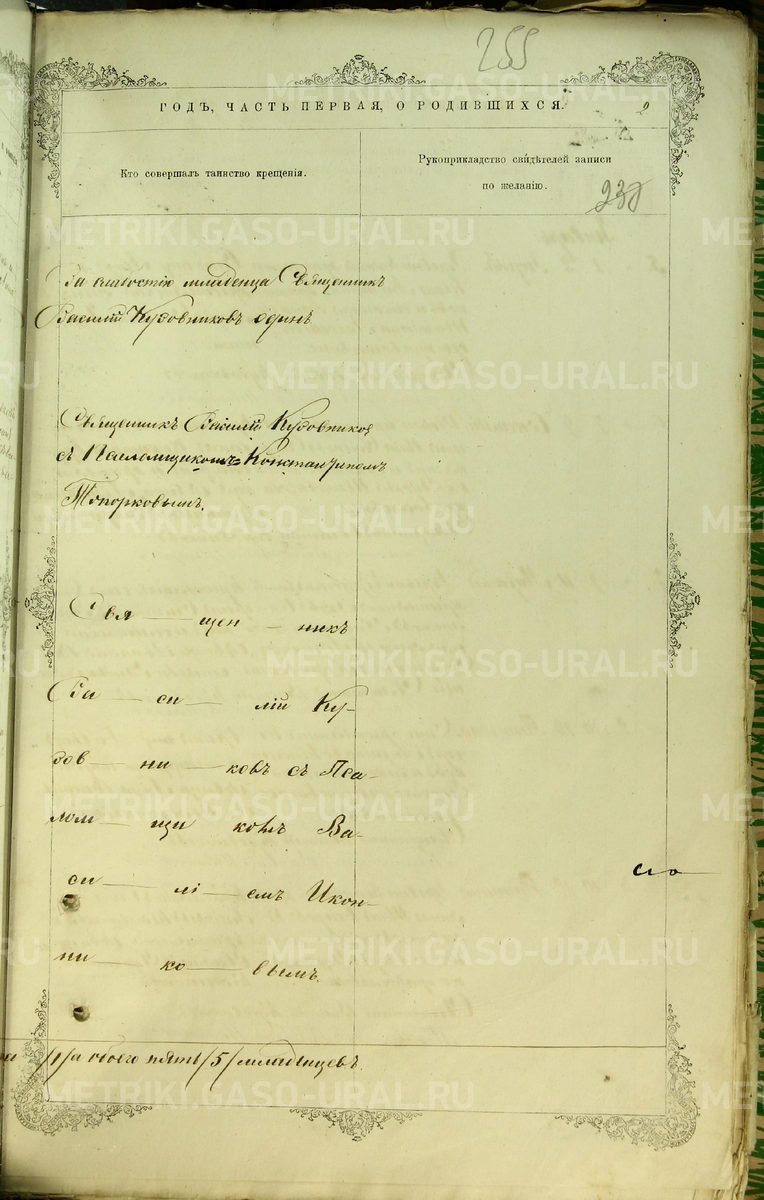 255
ГОДЪ, ЧАСТЬ ПЕРВАЯ, О РОДИВШИХСЯ.
2
Кто совершалъ таинство крещенія.
Рукоприкладство свидѣтелей записи
по желанію.
239
За слабостію младенца Священникъ
Василій Кудовниковъ одинъ
Священникъ Василій Кудовников
съ Псаломщикомъ Константиномъ
Топорковымъ.
Свя — щен — никъ
Ва — си — лій Ку-
дов — ни — ковъ съ Пса-
лом — щи комъ Ва-
си — лі — емъ Икон-
ни — ко — вымъ.
/1/ а обоего пять /5/ младенцевъ.
METRIKI.GASO-URAL.RU